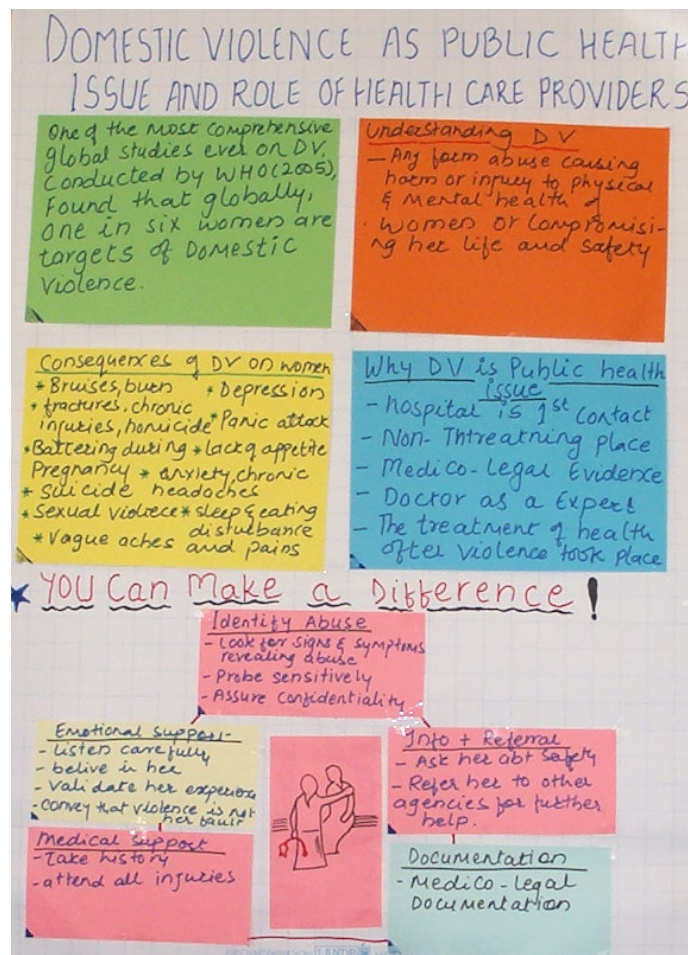 DOMESTIC VIOLENCE AS PUBLIC HEALTH
ISSUE AND ROLE OF HEALTH CARE PROVIDERS
One of the most comprehensive
global studies ever on DV,
conducted by WHO (2005),
Found that globally,
one in six women are
targets of Domestic
violence.
Understanding DV
- Any form abuse causing
harm or injury to physical
& Mental health of
women or compromisi-
ng her life and safety
Consequences of DV on women
* Bruises, burn * Depression
* fractures, chronic
injuries, homicide * Panic attack
* Battering during * lack of appetite
Pregnancy * anxiety, chronic
* Suicide headaches
* Sexual violece * sleep & eating
disturbance
* Vague aches and pains
Why DV is Public health
issue
- hospital is 1st contact
- Non-Thtreatning place
- Medico-Legal Evidence
- Doctor as a Expert
- The treatment of health
after violence took place
* YOU Can Make a Difference!
Identify Abuse
- Look for signs & symptoms
revealing abuse
- Probe sensitively
- Assure confidentiality
Emotional support-
- listen carefully
- belive in her
- validate her experience
- convey that violence is not
her fault
Info + Referral
- Ask her abt safety
- Refer her to other
agencies for further
help.
Medical support
- Take history
- attend all injuries
Documentation
- Medico-legal
Documentation